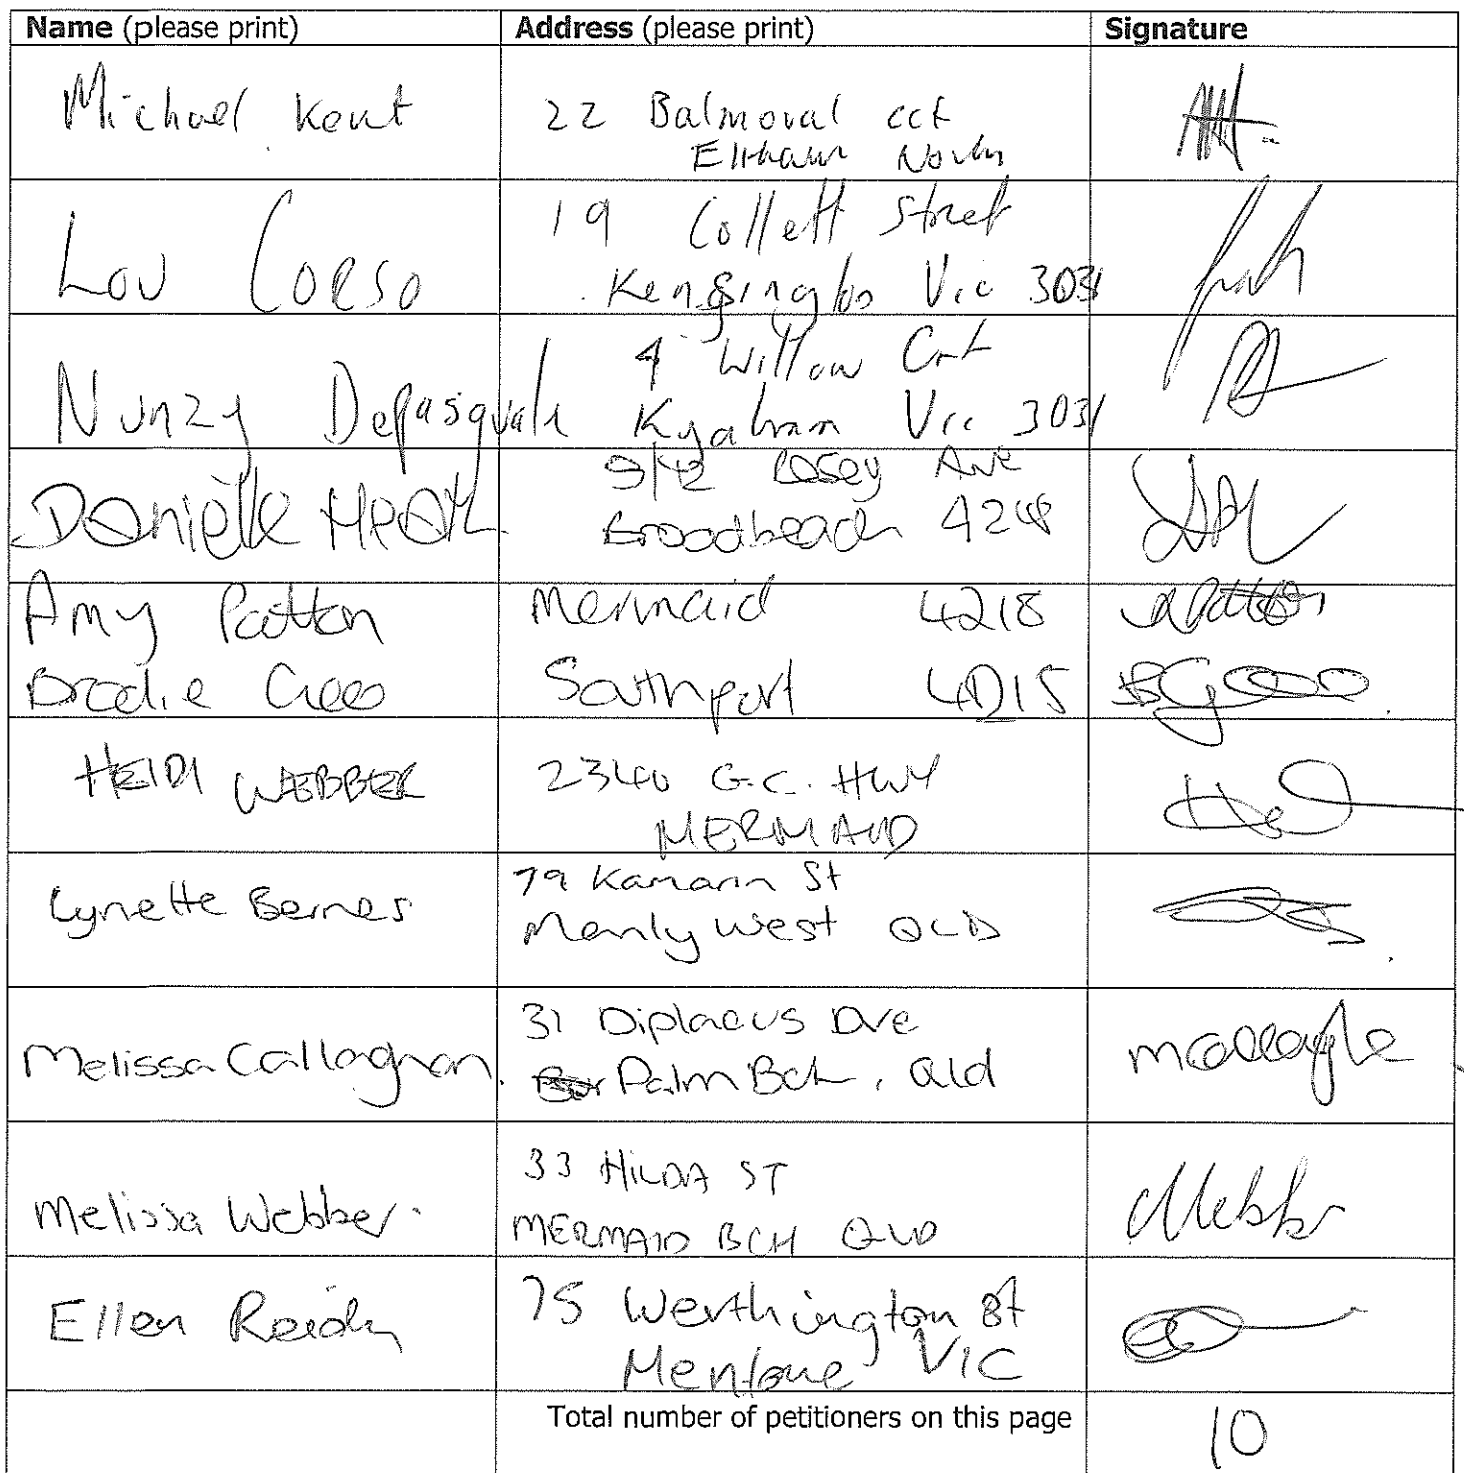 Name (please print) Address (please print) Signature
Michael Kent 22 Balmoral cct
Eltham North
Lou Corso 19 Collett Street
Kensington Vic 3031
Nunzy Depasquale 4 Willow Crt
Kyabram Vic 3031
Danielle Heath Ave
Broadbeach 4218
Amy Patton Mermaid 4218
Brodie Southport 4215
HEIDI WEBBER 2340 G.C. HWY
MERMAID
Lynette Bernes 79 Kamarin St
Manly West QLD
Melissa Callaghan. 31 Diplacus Dve
Palm Bch, Qld
Melissa Webber 33 HILDA ST
MERMAID BCH QLD
Ellen Reidy 75 Werthington St
Mentone VIC
Total number of petitioners on this page 10